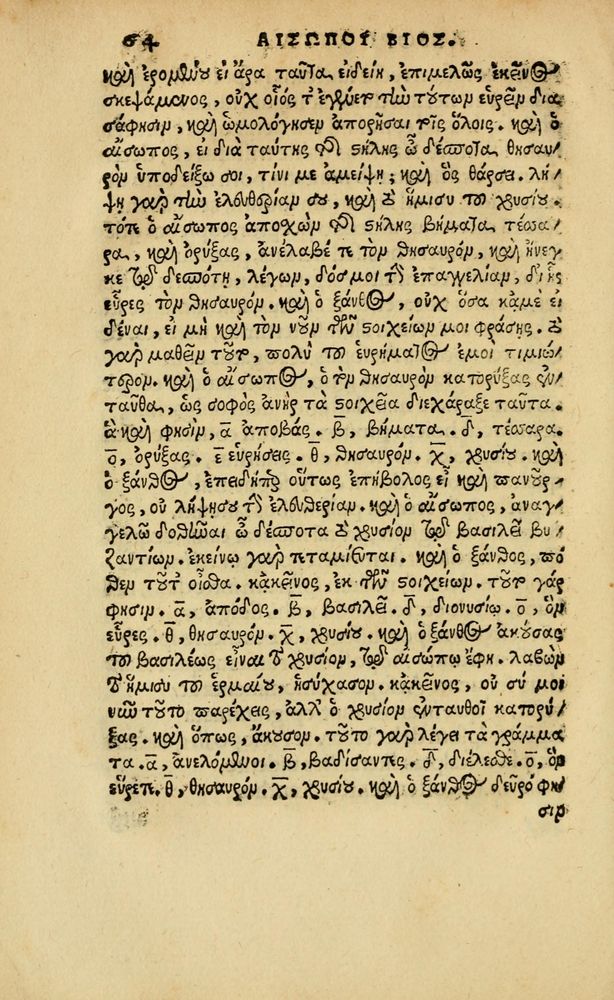 64 ΑΙΣΩΠΟΥ ΒΙΟΣ.
καὶ ἐρομένου εἰ ἄρα ταῦτα εἰδείη, ἐπιμελῶς ἐκεῖνος
σκεψάμενος, οὐχ οἷός τ' ἐγένετο τὴν τούτων εὑρεῖν δια
σάφησιν, καὶ ὡμολόγησεν ἀπορῆσαι τοῖς ὅλοις. καὶ ὁ
αἴσωπος, εἰ διὰ ταύτης τῆς στήλης ὦ δέσποτα θησαυ/
ρὸν ὑποδείξω σοι, τίνι με ἀμείψῃ; καὶ ὃς θάρσει. λή/
ψῃ γὰρ τὴν ἐλευθερίαν σου, καὶ τὸ ἥμισυ τοῦ χρυσίου.
τότε ὁ αἴσωπος ἀποχὼν τῆς στήλης βήματα τέσσα/
ρα, καὶ ὀρύξας, ἀνέλαβέ τε τὸν θησαυρόν, καὶ ἤνεγ
κε τῷ δεσπότῃ, λέγων, δός μοι τὴν ἐπαγγελίαν, δι' ἧς
εὗρες τὸν θησαυρόν. καὶ ὁ ξάνθος, οὐχ ὅσα κἀμὲ εἰ
δέναι, εἰ μὴ καὶ τὸν νοῦν τῶν στοιχείων μοι φράσῃς. τὸ
γὰρ μαθεῖν τοῦτο, πολὺ τοῦ εὑρήματος ἐμοὶ τιμιώ/
τερον. καὶ ὁ αἴσωπος, ὁ τὸν θησαυρὸν κατορύξας ἐν/
ταῦθα, ὡς σοφὸς ἀνὴρ τὰ στοιχεῖα διεχάραξε ταῦτα.
ἃ καὶ φησιν, α ἀποβάς. β, βήματα. δ, τέσσαρα.
ο, ὀρύξας. ε εὑρήσεις. θ, θησαυρόν. χ, χρυσίου. καὶ
ὁ ξάνθος, ἐπειδήπερ οὕτως ἐπήβολος εἶ καὶ πανοῦρ/
γος, οὐ λήψῃ σου τὴν ἐλευθερίαν. καὶ ὁ αἴσωπος, ἀναγ/
γελῶ δοθῆναι ὦ δέσποτα τὸ χρυσίον τῷ βασιλεῖ βυ/
ζαντίων. ἐκείνῳ γὰρ τεταμίευται. καὶ ὁ ξάνθος, πό/
θεν τοῦτ' οἶσθα. κἀκεῖνος, ἐκ τῶν στοιχείων. τοῦτο γάρ
φησιν. α, ἀπόδος. β, βασιλεῖ. δ, διονυσίῳ. ο, ὃν
εὗρες. θ, θησαυρόν. χ, χρυσίου. καὶ ὁ ξάνθος ἀκούσας
τοῦ βασιλέως εἶναι τὸ χρυσίον, τῷ αἰσώπῳ ἔφη. λαβὼν
τὸ ἥμισυ τοῦ ἑρμαίου, ἡσύχασον. κἀκεῖνος, οὐ σύ μοι
νῦν τοῦτο παρέχεις, ἀλλ' ὁ χρυσίον ἐνταυθοῖ κατορύ/
ξας. καὶ ὅπως, ἄκουσον. τοῦτο γὰρ λέγει τὰ γράμμα
τα. α, ἀνελόμενοι. β, βαδίσαντες. δ, διέλεσθε. ο, ὃν
εὕρετε. θ, θησαυρόν. χ, χρυσίου. καὶ ὁ ξάνθος δεῦρό φη/
σιν